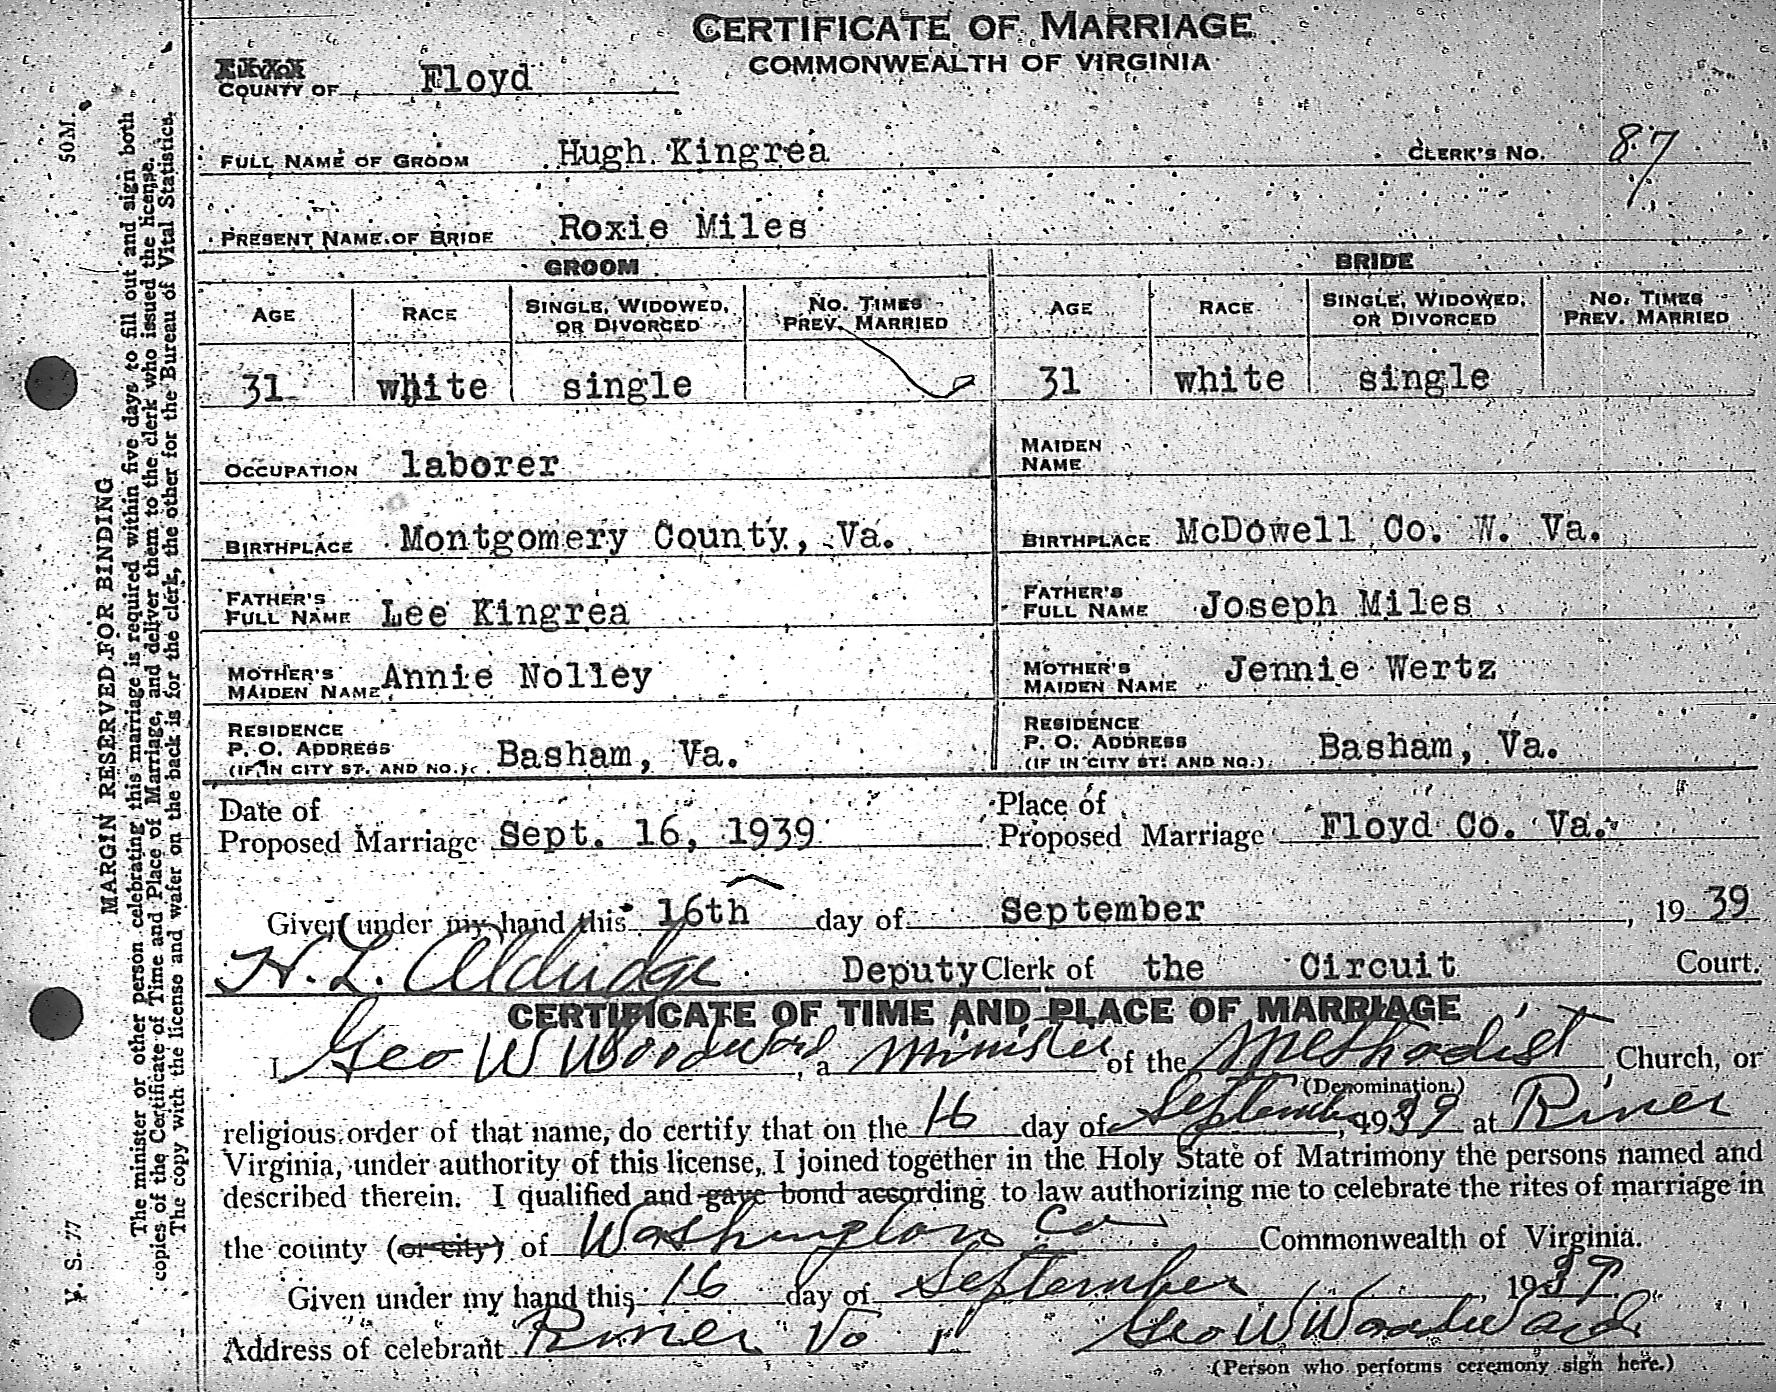 CERTIFICATE OF MARRIAGE
COMMONWEALTH OF VIRGINIA
COUNTY OF Floyd
FULL NAME OF GROOM Hugh Kingrea CLERK'S NO. 87
PRESENT NAME OF BRIDE Roxie Miles
GROOM BRIDE
AGE RACE SINGLE, WIDOWED, OR DIVORCED NO. TIMES PREV. MARRIED AGE RACE SINGLE, WIDOWED, OR DIVORCED NO. TIMES PREV. MARRIED
31 white single 31 white single
OCCUPATION laborer MAIDEN NAME
BIRTHPLACE Montgomery County, Va. BIRTHPLACE McDowell Co. W. Va.
FATHER'S FULL NAME Lee Kingrea FATHER'S FULL NAME Joseph Miles
MOTHER'S MAIDEN NAME Annie Nolley MOTHER'S MAIDEN NAME Jennie Wertz
RESIDENCE P. O. ADDRESS (IF IN CITY ST. AND NO.) Basham, Va. RESIDENCE P. O. ADDRESS (IF IN CITY ST. AND NO.) Basham, Va.
Date of Proposed Marriage Sept. 16, 1939 Place of Proposed Marriage Floyd Co. Va.
Given under my hand this 16th day of September, 1939
H. L. Aldridge Deputy Clerk of the Circuit Court.
CERTIFICATE OF TIME AND PLACE OF MARRIAGE
I, Geo W Woodward, a Minister of the Methodist Church, or
(Denomination.)
religious order of that name, do certify that on the 16 day of September, 1939 at Riner
Virginia, under authority of this license, I joined together in the Holy State of Matrimony the persons named and
described therein. I qualified and gave bond according to law authorizing me to celebrate the rites of marriage in
the county (or city) of Washington Co Commonwealth of Virginia.
Given under my hand this 16 day of September, 1939.
Address of celebrant Riner Va Geo W Woodward
(Person who performs ceremony sign here.)
V. S. 77 50M.
MARGIN RESERVED FOR BINDING
The minister or other person celebrating this marriage is required within five days to fill out and sign both
copies of the Certificate of Time and Place of Marriage, and deliver them to the clerk who issued the license.
The copy with the license and wafer on the back is for the clerk, the other for the Bureau of Vital Statistics.